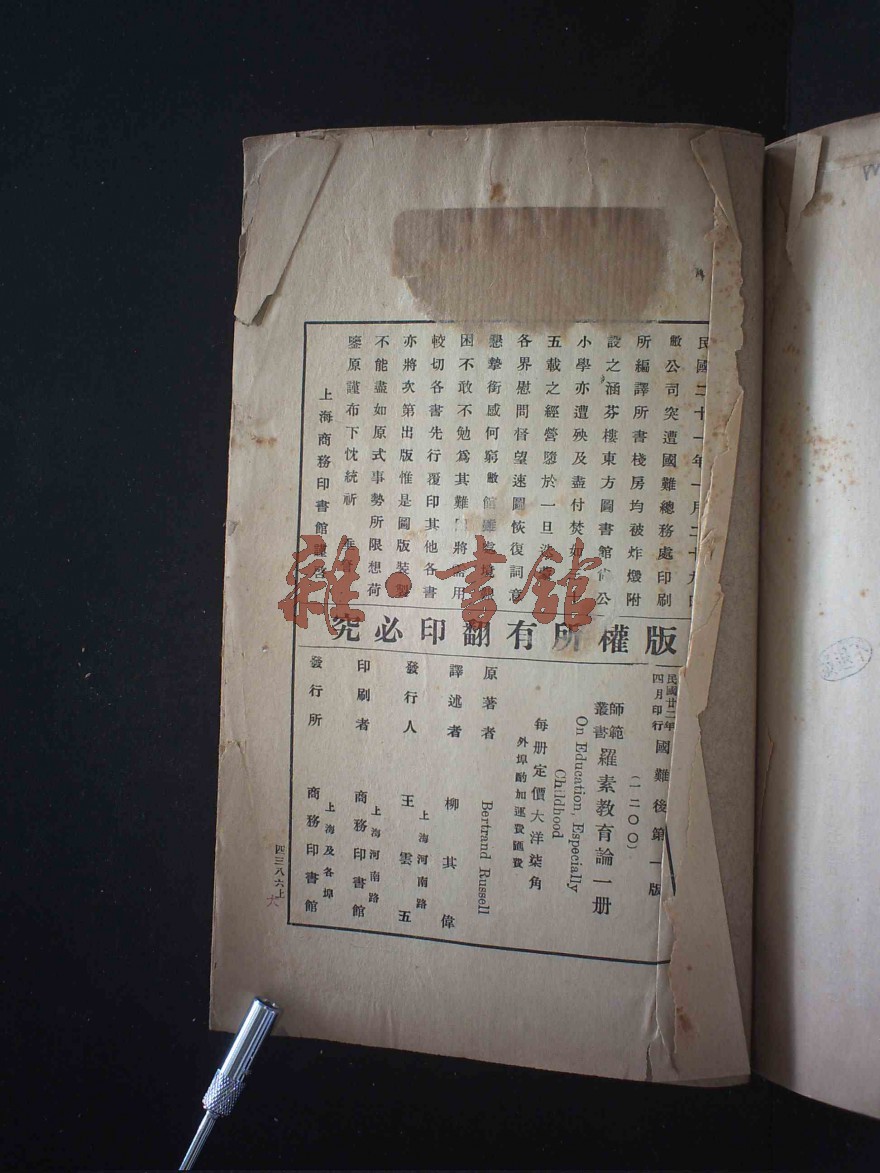 民國二十一年一月二十九日
敝公司突遭國難總務處印刷
所編譯所書棧房均被炸燬附
設之涵芬樓東方圖書館尚公
小學亦遭殃及盡付焚如三十
五載之經營隳於一旦
各界慰問督望速圖恢復詞意
懇摯銜感何窮敝館雖處
困不敢不勉爲其難將需用
較切各書先行覆印其他各書
亦將次第出版惟是圖版裝製
不能盡如原式事勢所限想荷
鑒原謹布下忱統祈
上海商務印書館謹啓
版權所有翻印必究
民國廿二年
四月印行
國難後第一版
(一二〇〇)
師範
叢書
羅素教育論一册
On Education, Especially
Childhood
每册定價大洋柒角
外埠酌加運費匯費
原著者 Bertrand Russell
譯述者 柳其偉
發行人 王雲五
上海河南路
印刷者 商務印書館
上海河南路
發行所 商務印書館
上海及各埠
四三八六上
六
雜·書館